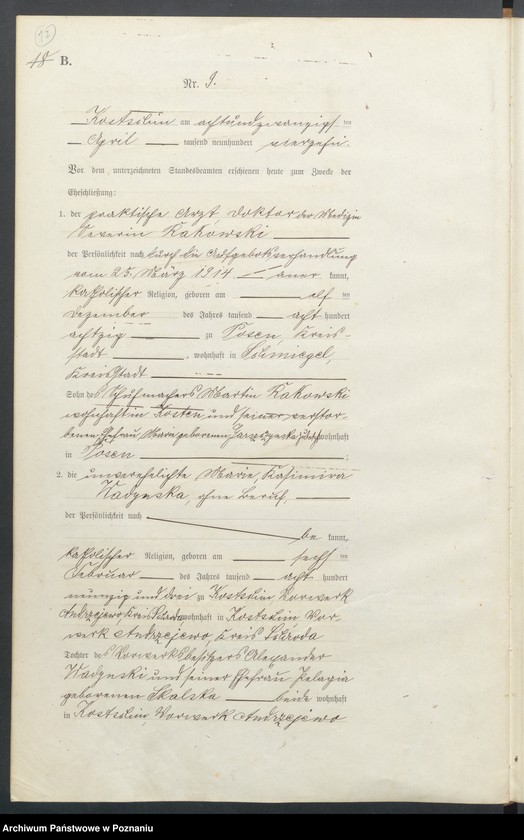 12
18 B.
Nr. 9.
Kostschin am achtundzwanzigsten
April tausend neunhundert vierzehn.
Vor dem unterzeichneten Standesbeamten erschienen heute zum Zwecke der
Eheschließung:
1. der praktische Arzt, Doktor der Medizin
Severin Kakowski
der Persönlichkeit nach durch die Aufgebotsverhandlung
vom 25. März 1914 aner kannt,
katholischer Religion, geboren am elf ten
Dezember des Jahres tausend acht hundert
achtzig zu Posen, Kreis-
stadt, wohnhaft in Schmiegel,
Kreisstadt
Sohn des Schuhmachers Martin Kakowski
wohnhaft in Kosten und seiner verstor-
benen Ehefrau, Maria geborenen zuletzt wohnhaft
in Posen ;
2. die unverehelichte Marie, Kasimira
Wadynska, ohne Beruf,
der Persönlichkeit nach
be kannt,
katholischer Religion, geboren am sechs ten
Februar des Jahres tausend acht hundert
neunzig und drei zu Kostschin Vorwerk
Andrzejewo, Kreis Schroda wohnhaft in Kostschin Vor-
werk Andrzejewo, Kreis Schroda
Tochter des Vorwerksbesitzers Alexander
Wadynski und seiner Ehefrau Pelagia
geborenen Skalska beide wohnhaft
in Kostschin, Vorwerk Andrzejewo
Archiwum Państwowe w Poznaniu